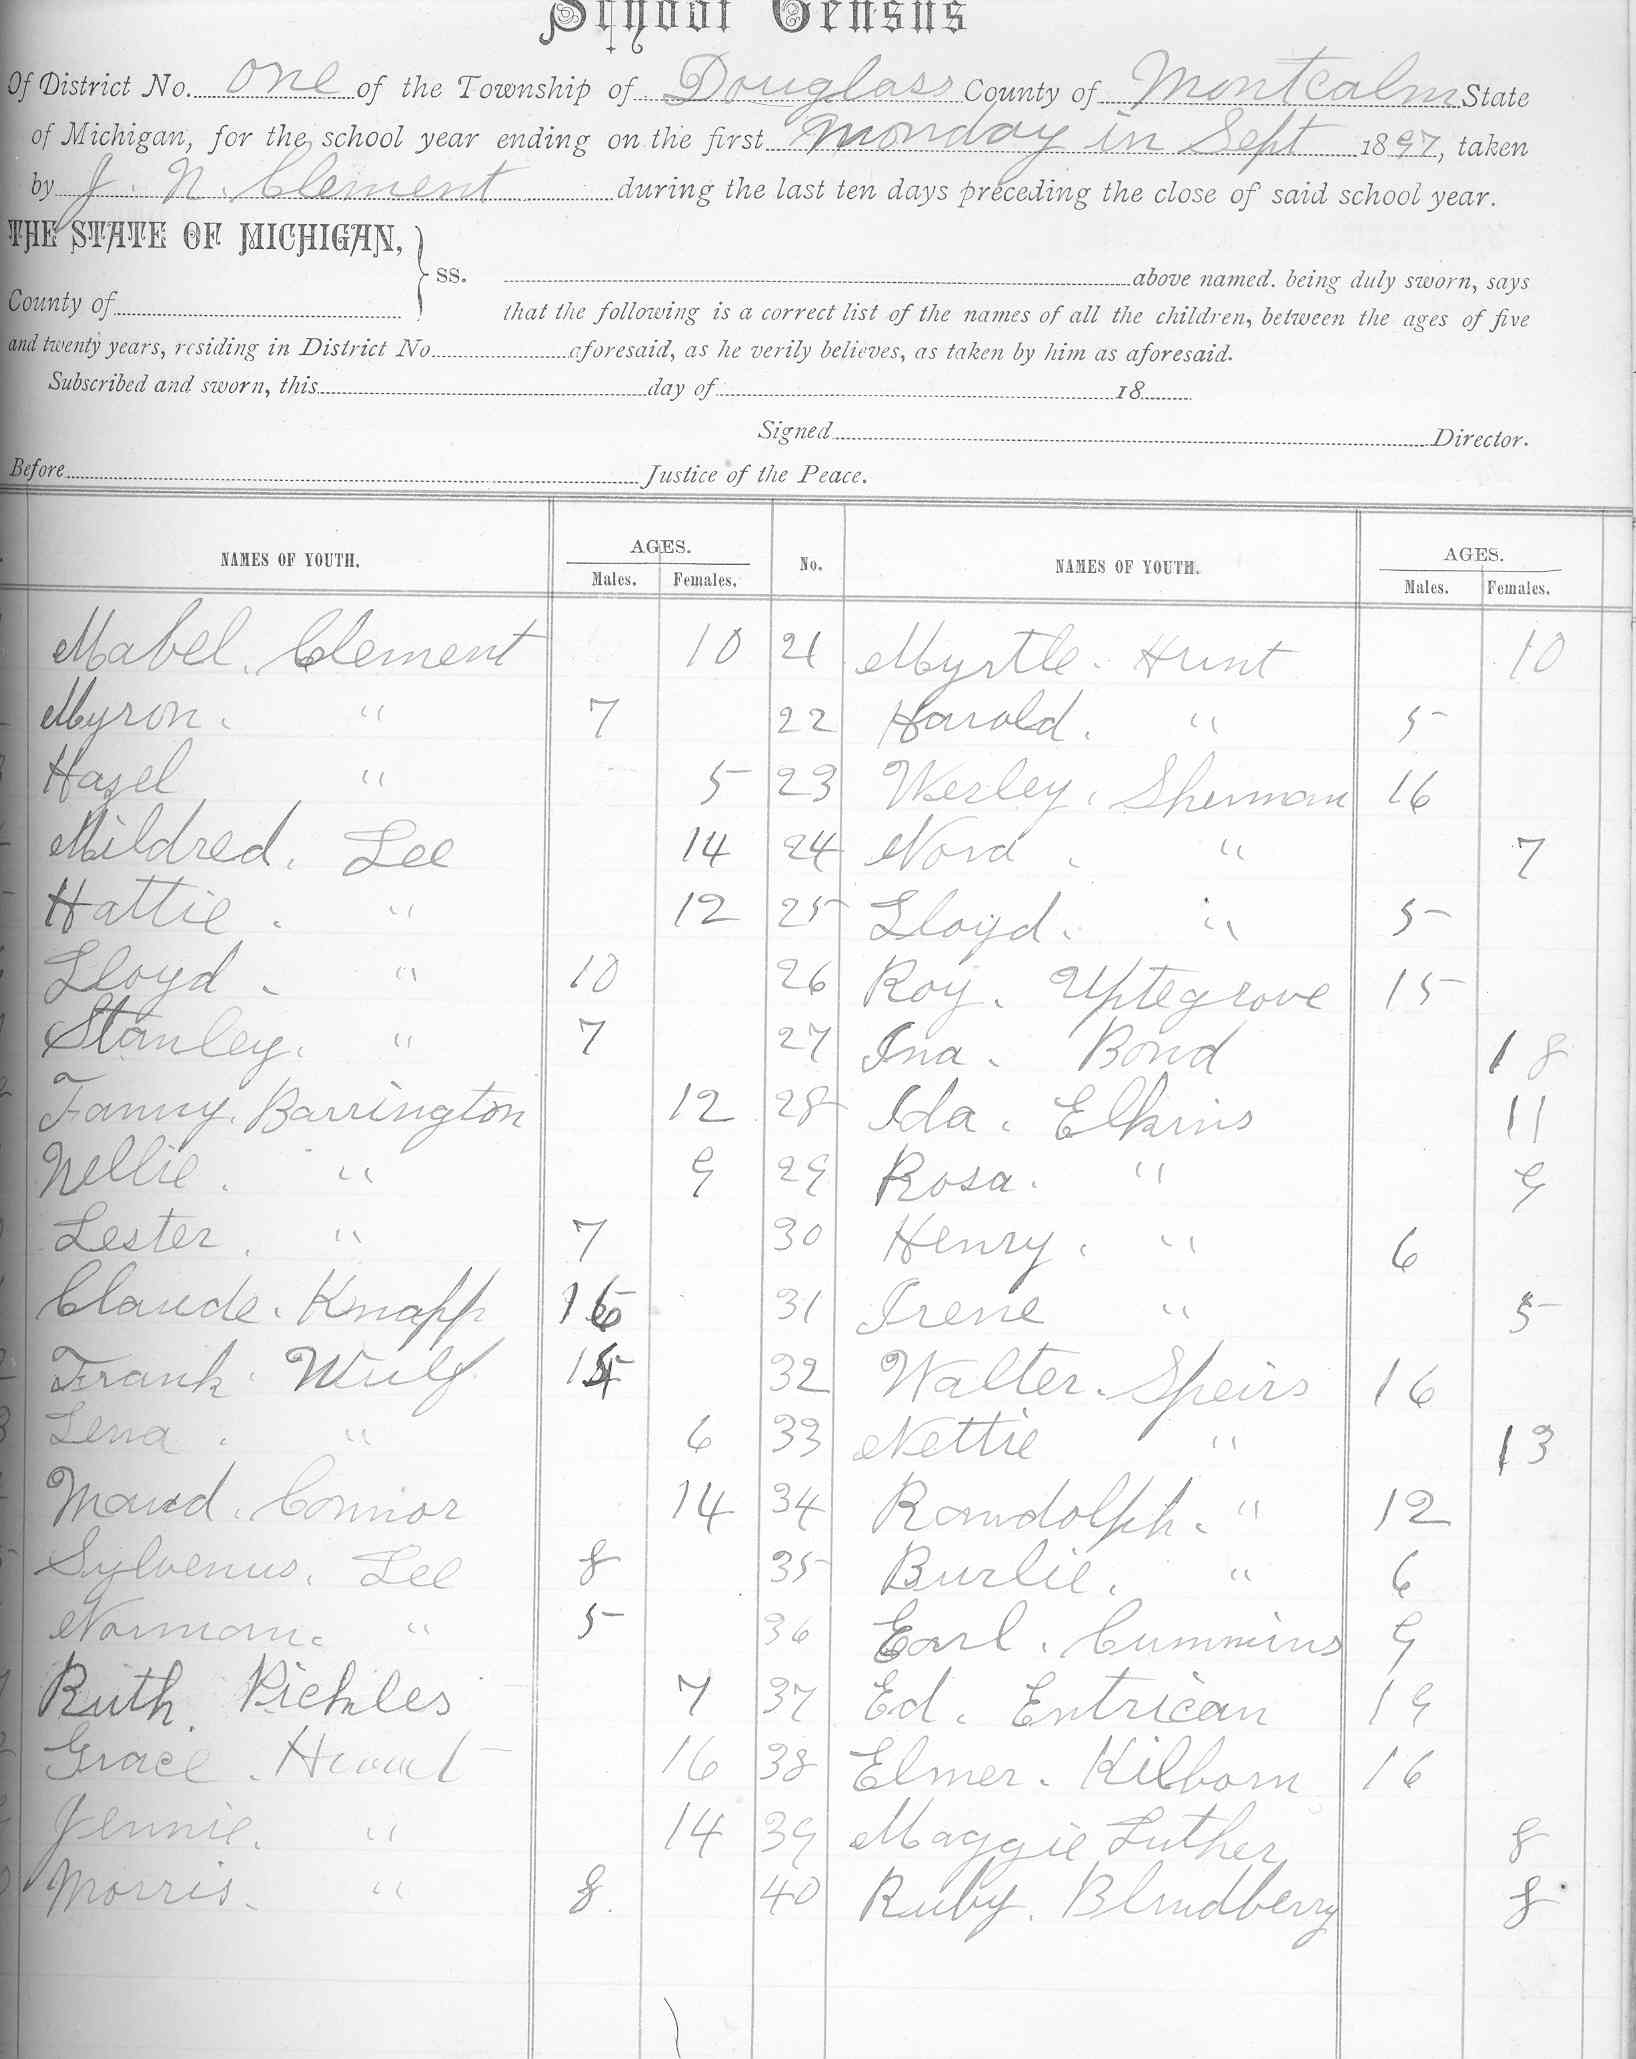 School Census
Of District No. One of the Township of Douglass County of Montcalm State
of Michigan, for the school year ending on the first Monday in Sept 1897, taken
by J. N. Clement during the last ten days preceding the close of said school year.
THE STATE OF MICHIGAN,
ss.
above named. being duly sworn, says
County of
that the following is a correct list of the names of all the children, between the ages of five
and twenty years, residing in District No. aforesaid, as he verily believes, as taken by him as aforesaid.
Subscribed and sworn, this day of 18
Signed Director.
Before Justice of the Peace.
NAMES OF YOUTH. AGES. Males. Females. No. NAMES OF YOUTH. AGES. Males. Females.
Mabel. Clement 10 21 Myrtle. Hunt 10
Myron. " 7 22 Harold. " 5
Hazel " 5 23 Werley. Sherman 16
Mildred. Lee 14 24 Nora . " 7
Hattie. " 12 25 Lloyd. " 5
Lloyd. " 10 26 Roy. Uptegrove 15
Stanley. " 7 27 Ina. Bond 18
Fanny. Barrington 12 28 Ida. Elkins 11
Nellie. " 9 29 Rosa. " 9
Lester. " 7 30 Henry. " 6
Claude. Knapp 16 31 Irene " 5
Frank. Wulf 32 Walter. Speirs 16
Lena . " 6 33 Nettie " 13
Maud. Connor 14 34 Randolph. " 12
Sylvenus. Lee 8 35 Burlie. " 6
Norman. " 5 36 Earl. Cummins 9
Ruth. Pickles 7 37 Ed. Entrican 19
Grace. 16 38 Elmer. Kilborn 16
Jennie. " 14 39 Maggie Luther 8
Morris. " 8. 40 Ruby. Blundberry 8